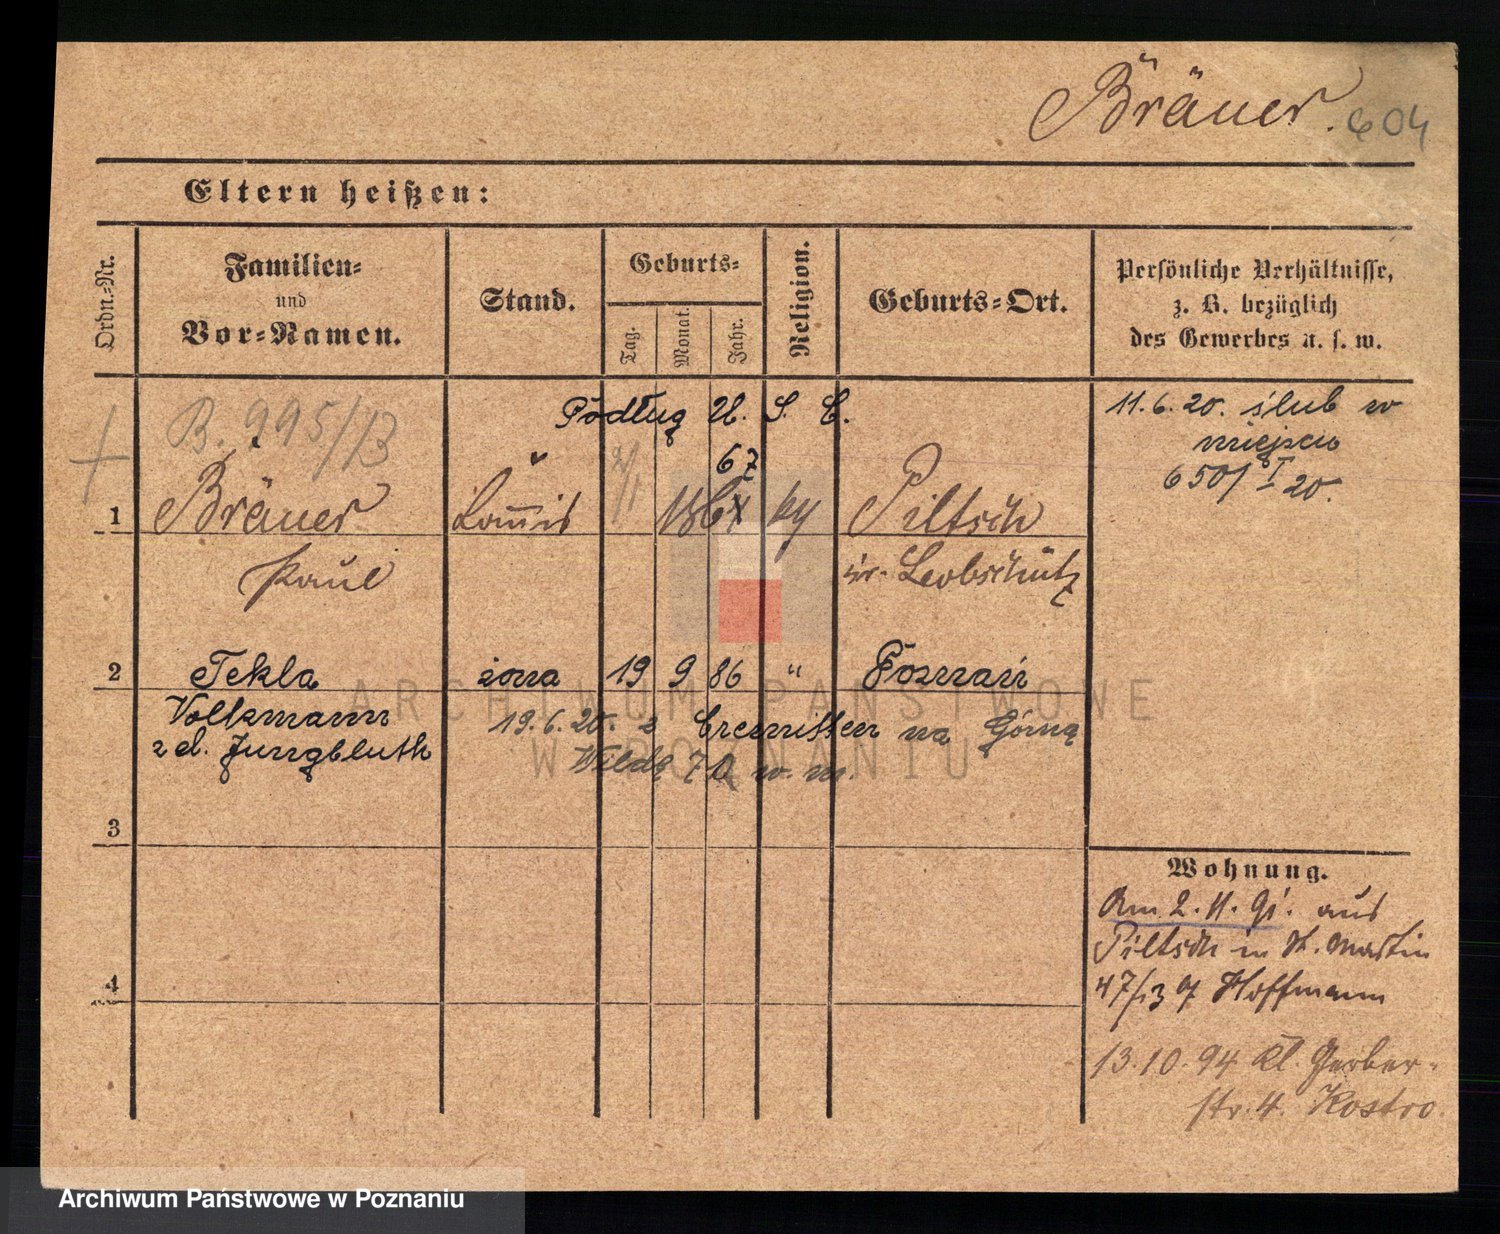 Bräuer. 604
Eltern heißen:
Ordn.-Nr.
Familien-
und
Vor-Namen.
Stand.
Geburts-
Tag.
Monat.
Jahr.
Religion.
Geburts-Ort.
Persönliche Verhältnisse,
z. B. bezüglich
des Gewerbes u. s. w.
B. 995/13
Podług U. S. C.
11.6.20. ślub w
miejscu
650/I 20.
67
1 Bräuer Commis 2/1 186 Piltsch
Paul Kr. Leobschütz
2 Tekla żona 19 9 86 " Poznań
Volkmann
z d. Jungbluth
19.6.20. z Czerniffen na Górną
Wildę 70 w. m.
3
4
Wohnung.
Am 2.11.91. aus
Piltsch in St. Martin
47/13 Hoffmann
13.10.94 Kl. Gerber-
str. 4. Kostro.
ARCHIWUM PAŃSTWOWE
W POZNANIU
Archiwum Państwowe w Poznaniu